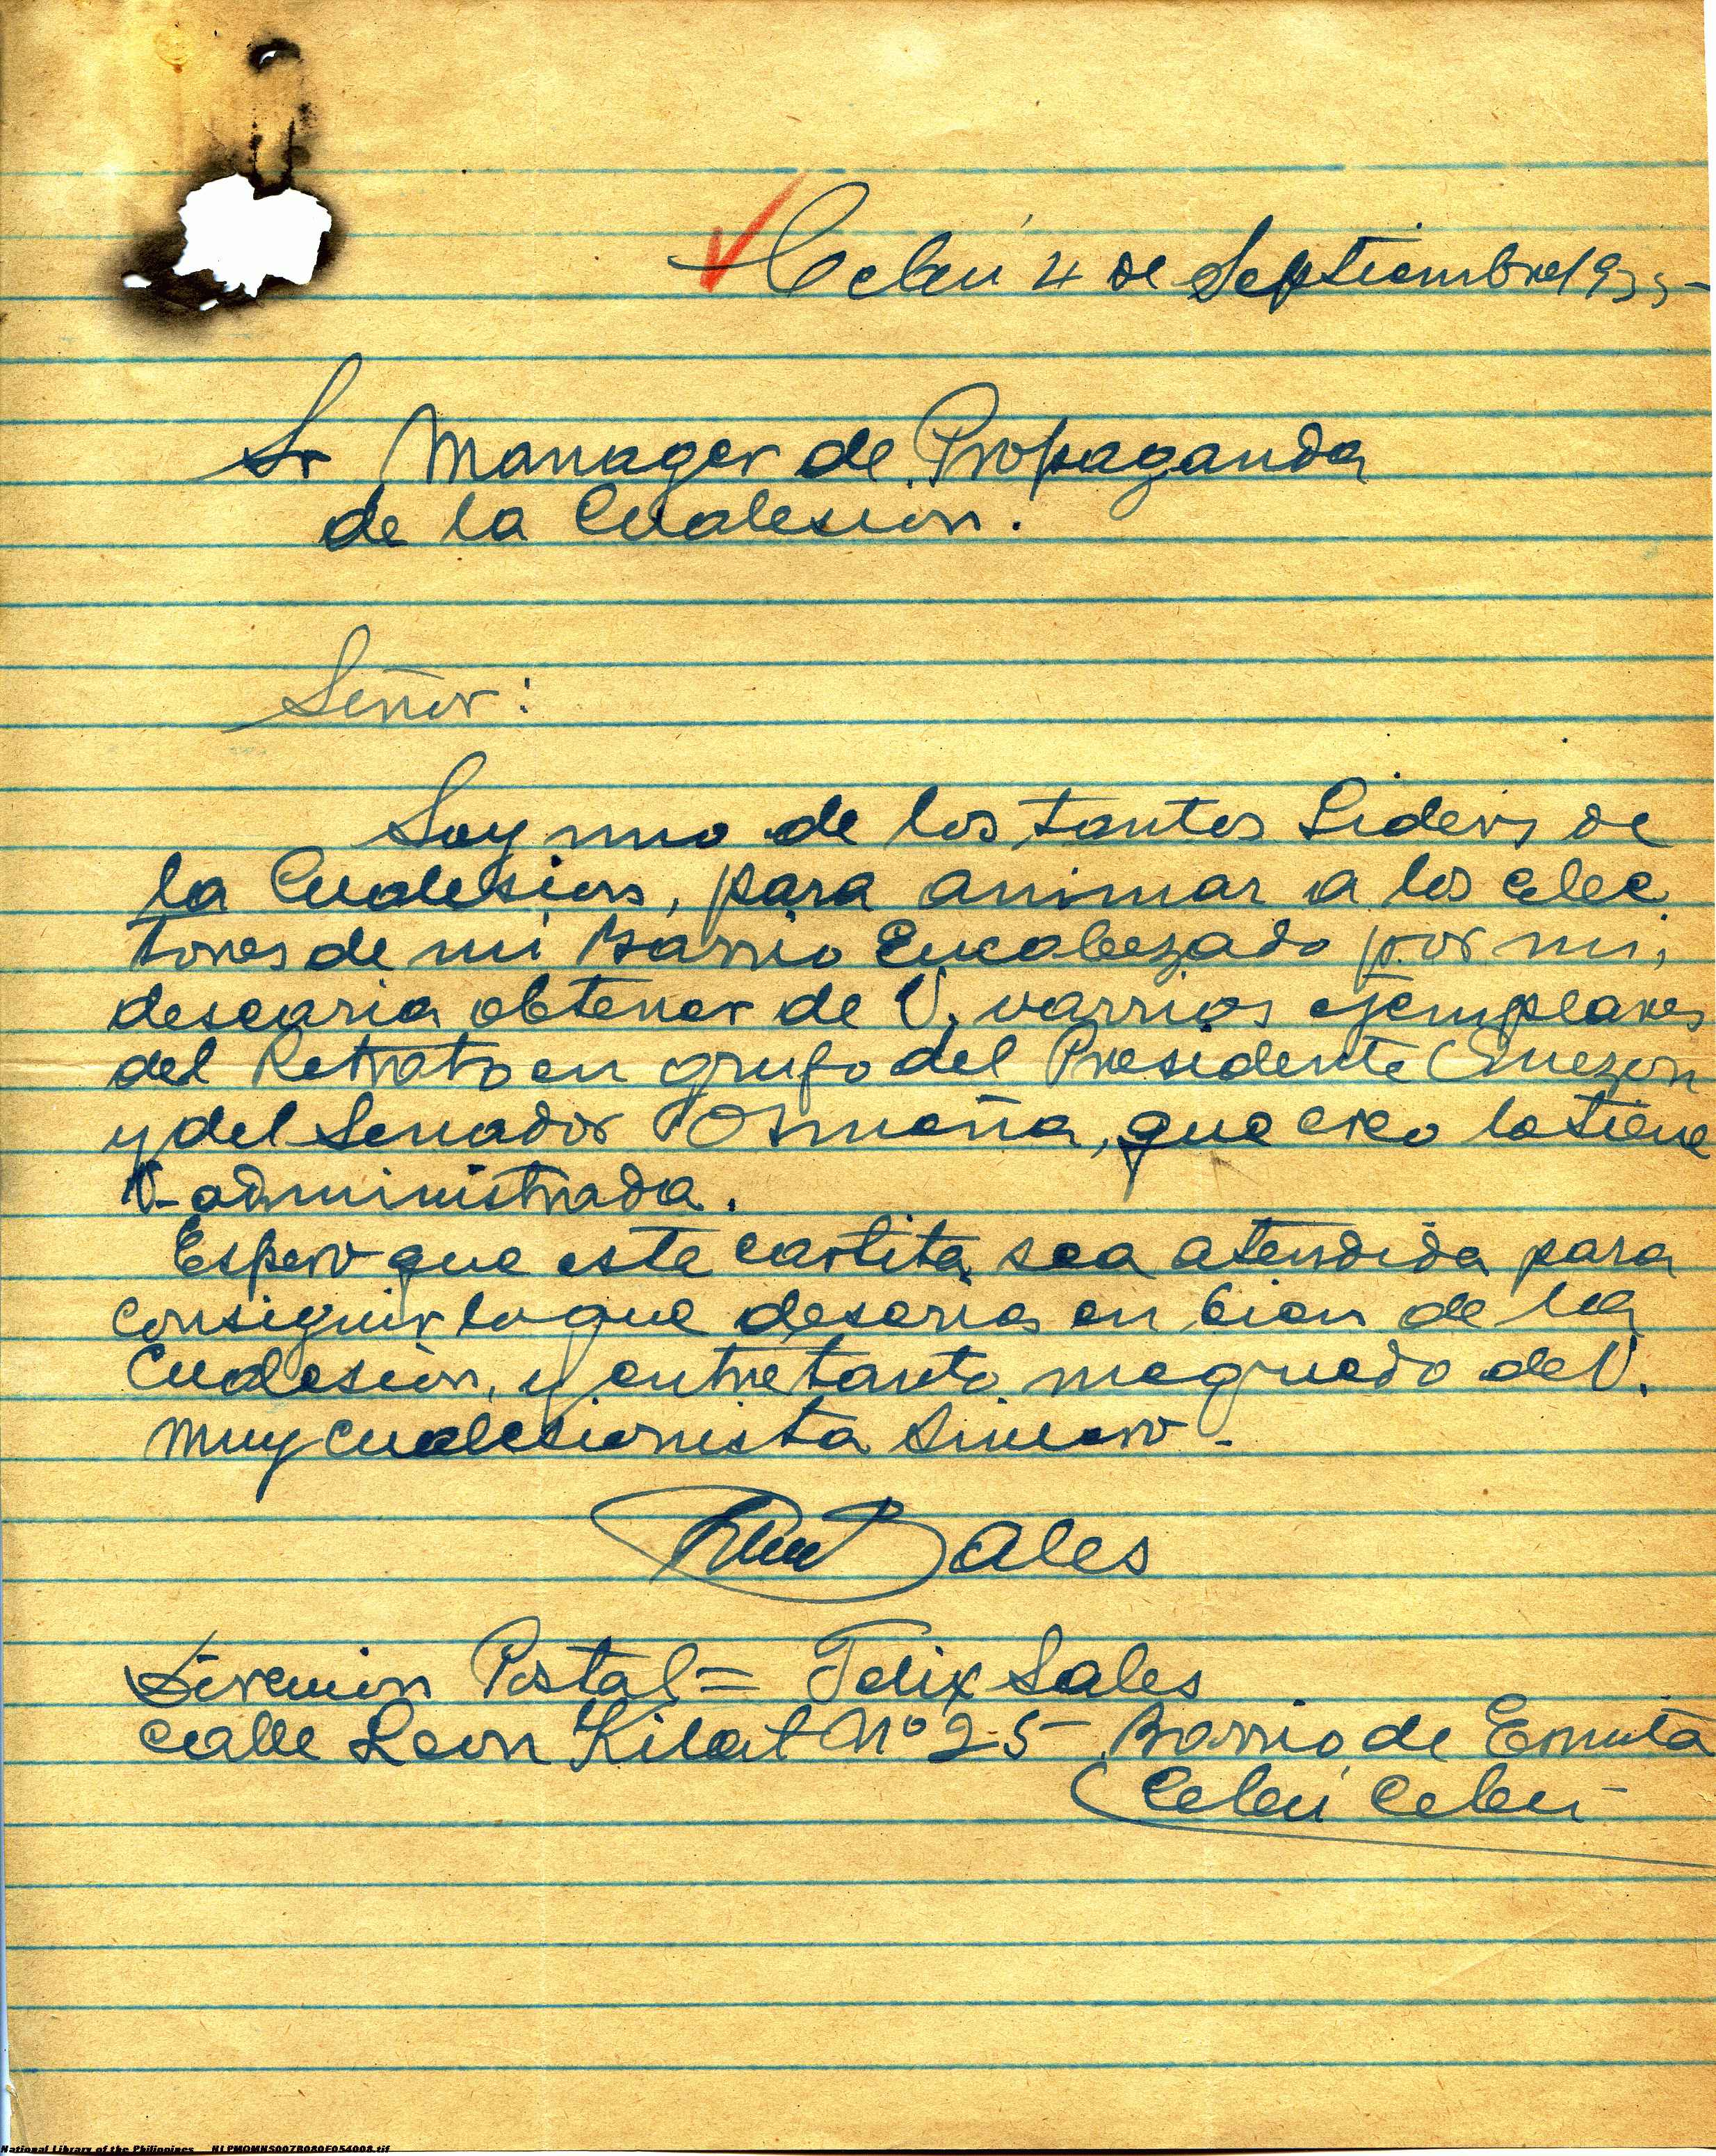 Cebú 4 de Septiembre 1935-
Sr Manager de Propaganda
de la Cualesion.
Señor:
Soy uno de los tantos Liders de
la Cualesion, para animar a los elec
tores de mi Barrio Encabezado por mi,
desearia obtener de V. varrios ejemplares
del Retrato en grupo del Presidente Quezon
y del Senador Osmeña, que creo lo tiene
V. administrada.
Espero que este cartita sea atendida para
consiguir lo que deseria en bien de la
Cualesion, y entretanto me quedo de V.
muy cualesionista Sincero-
Sales
Direccion Postal = Felix Sales
calle Leon Kilat Nº 25- Barrio de Ermita
Cebú Cebu-
National Library of the Philippines NLPMQMNS007B080F054008.tif